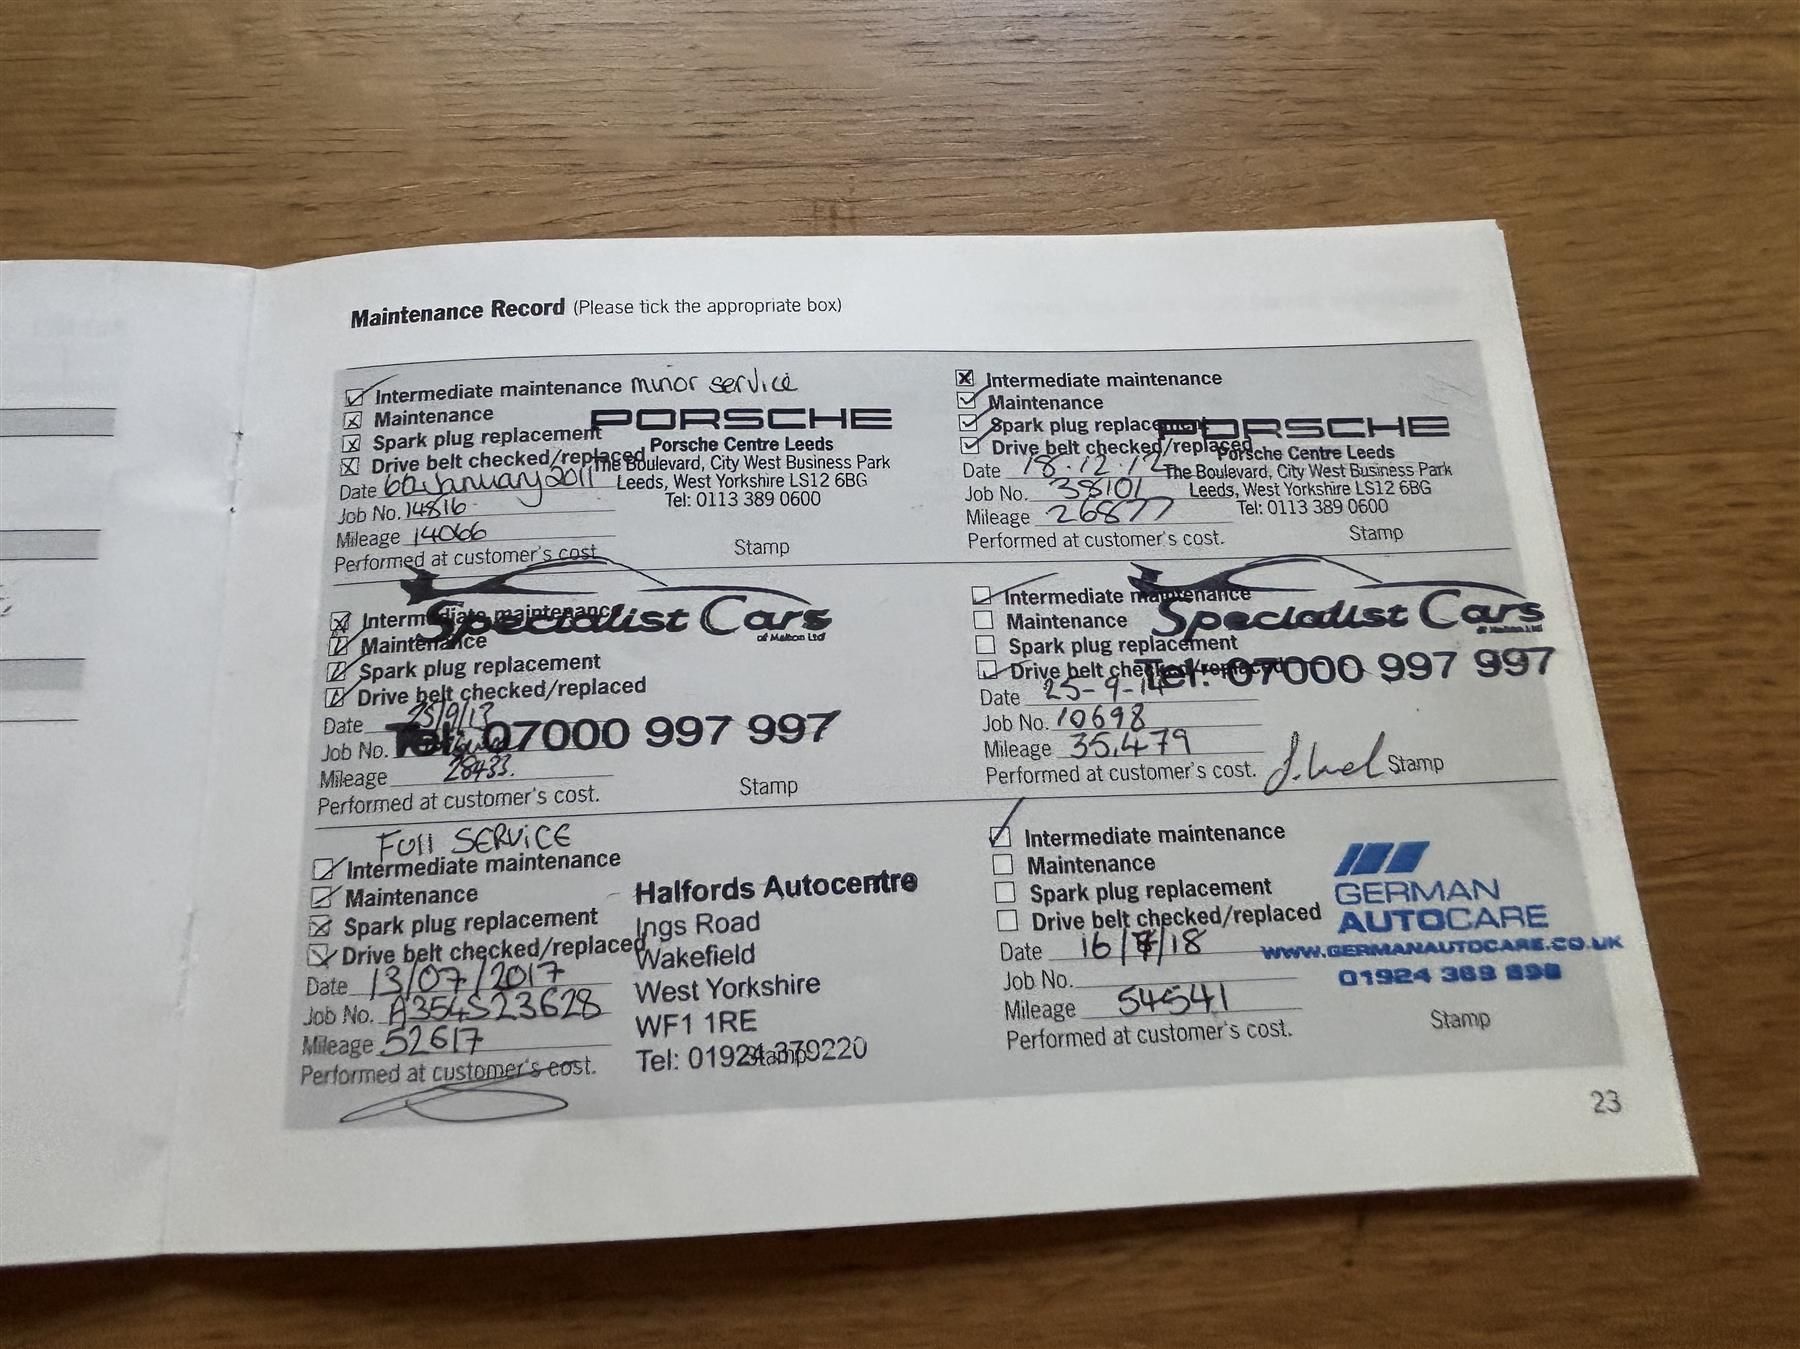 Maintenance Record (Please tick the appropriate box)
Intermediate maintenance minor service
Maintenance
Spark plug replacement
Drive belt checked/replaced
Date 6th January 2011
Job No. 14816
Mileage 14066
Performed at customer's cost
PORSCHE
Porsche Centre Leeds
The Boulevard, City West Business Park
Leeds, West Yorkshire LS12 6BG
Tel: 0113 389 0600
Stamp
Intermediate maintenance
Maintenance
Spark plug replacement
Drive belt checked/replaced
Date 18.12.12
Job No. 38101
Mileage 26877
Performed at customer's cost.
PORSCHE
Porsche Centre Leeds
The Boulevard, City West Business Park
Leeds, West Yorkshire LS12 6BG
Tel: 0113 389 0600
Stamp
Intermediate maintenance
Maintenance
Spark plug replacement
Drive belt checked/replaced
Date 25/9/13
Job No.
Mileage 28433.
Performed at customer's cost.
Specialist Cars
of Malton Ltd
Tel: 07000 997 997
Stamp
Intermediate maintenance
Maintenance
Spark plug replacement
Drive belt checked/replaced
Date 25-9-14
Job No. 10698
Mileage 35,479
Performed at customer's cost.
Specialist Cars
of Malton Ltd
Tel: 07000 997 997
Stamp
Full SERVICE
Intermediate maintenance
Maintenance
Spark plug replacement
Drive belt checked/replaced
Date 13/07/2017
Job No. A354S23628
Mileage 52617
Performed at customer's cost.
Halfords Autocentre
Ings Road
Wakefield
West Yorkshire
WF1 1RE
Tel: 01924 379220
Stamp
Intermediate maintenance
Maintenance
Spark plug replacement
Drive belt checked/replaced
Date 16/7/18
Job No.
Mileage 54541
Performed at customer's cost.
GERMAN
AUTOCARE
WWW.GERMANAUTOCARE.CO.UK
01924 369 898
Stamp
23